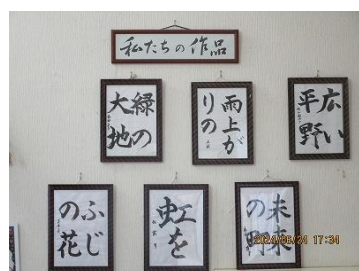 私たちの作品
緑の
大地
雨上が
りの
広い
平野
ふじ
の花
虹を
未来
の門
2024/05/21 17:34